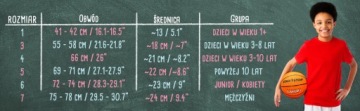 ROZMIAR OBWÓD ŚREDNICA GRUPA
1 41 - 42 cm / 16.1-16.5" ~13 / 5.1" DZIECI W WIEKU 1+
3 55 - 58 cm / 21.6-21.8" ~18 cm / ~7" DZIECI W WIEKU 3-8 LAT
4 66 cm / 26" ~21 cm / ~8.2" DZIECI W WIEKU 3-10 LAT
5 69 - 71 cm / 27.1-27.9" ~22 cm / ~8.6" POWYŻEJ 10 LAT
6 72 - 74 cm / 28.3-29.1" ~23 cm / 9" JUNIOR / KOBIETY
7 75 - 78 cm / 29.5 - 30.7" ~24 cm / 9.4" MĘŻCZYŹNI